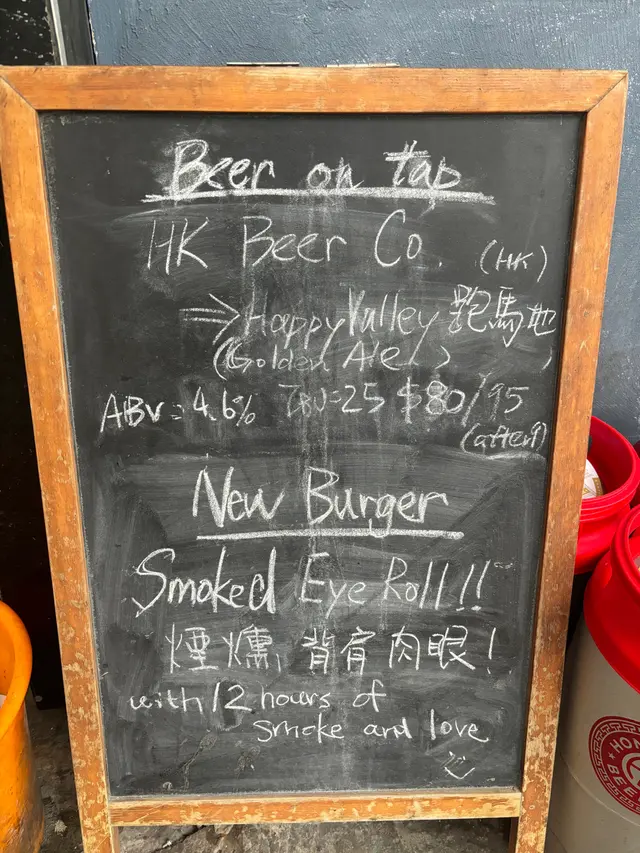 Beer on tap
HK Beer Co. (HK)
⇒ Happy Valley 跑馬地
(Golden Ale)
ABV = 4.6% IBU=25 $80/95
(after9)
New Burger
Smoked Eye Roll!!
煙燻 背肩肉眼!
with 12 hours of
smoke and love
HON
BEE